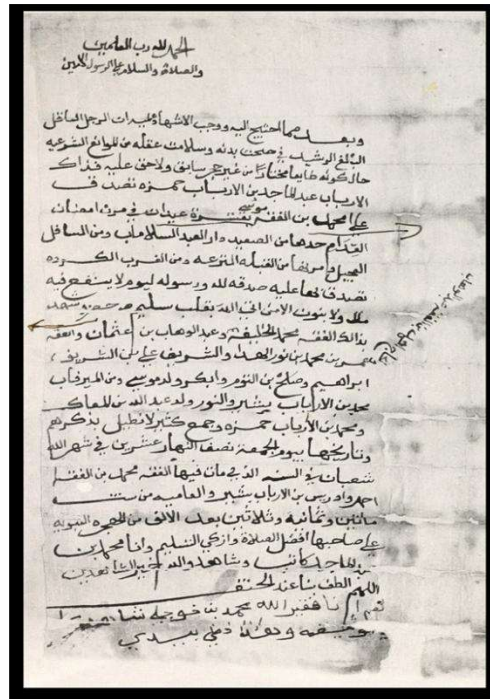 الحمد لله رب العالمين
والصلاة والسلام على الرسول الامين
وبعد مما احتيج اليه ووجب الاشهاد لديه ان الرجل العاقل
البالغ الرشيد في صحت بدنه وسلامت عقله من الموانع الشرعيه
حال كونه طايعا مختارا من غير جبر سابق ولاحق عليه فذاك
الارباب عبد الماجد بن الارباب حمزه تصدق
على محمد بن الفقه موسى عبدات في
حدها من الصعيد دار العبد السلاماب ومن السافل
ومن القبله الترعه ومن الغرب
تصدق بها عليه صدقه لله ورسوله ليوم لا ينفع فيه
مال ولا بنون الا من اتى الله بقلب سليم شهد
بذالك الفقه محمد الخليفه وعبد الوهاب بن عثمان والفقه
عمر بن محمد بن نور الهدا والشريف علي بن الشريف
ابراهيم وصالح بن النوم وابكر ولد موسى ومن الميرفاب
محمد بن الارباب بشير والنور ولد عبد الله بن
ومحمد بن الارباب حمزه وجمع كثير لا نطيل بذكرهم
وتاريخها بيوم الجمعة نصف النهار عشرين في شهر الله
شعبان في السنه الذي مات فيها الفقه محمد بن الفقه
احمد وادريس بن الارباب بشير والعاميه من سنة
ماتين وثمانيه وثلاثين بعد الالف من الهجره النبويه
على صاحبها افضل الصلاة وازكى التسليم وانا محمد بن
كاتبا وشاهدا والله خير الشاهدين
اللهم الطف بنا عند
انا فقير الله محمد بن
بيدي